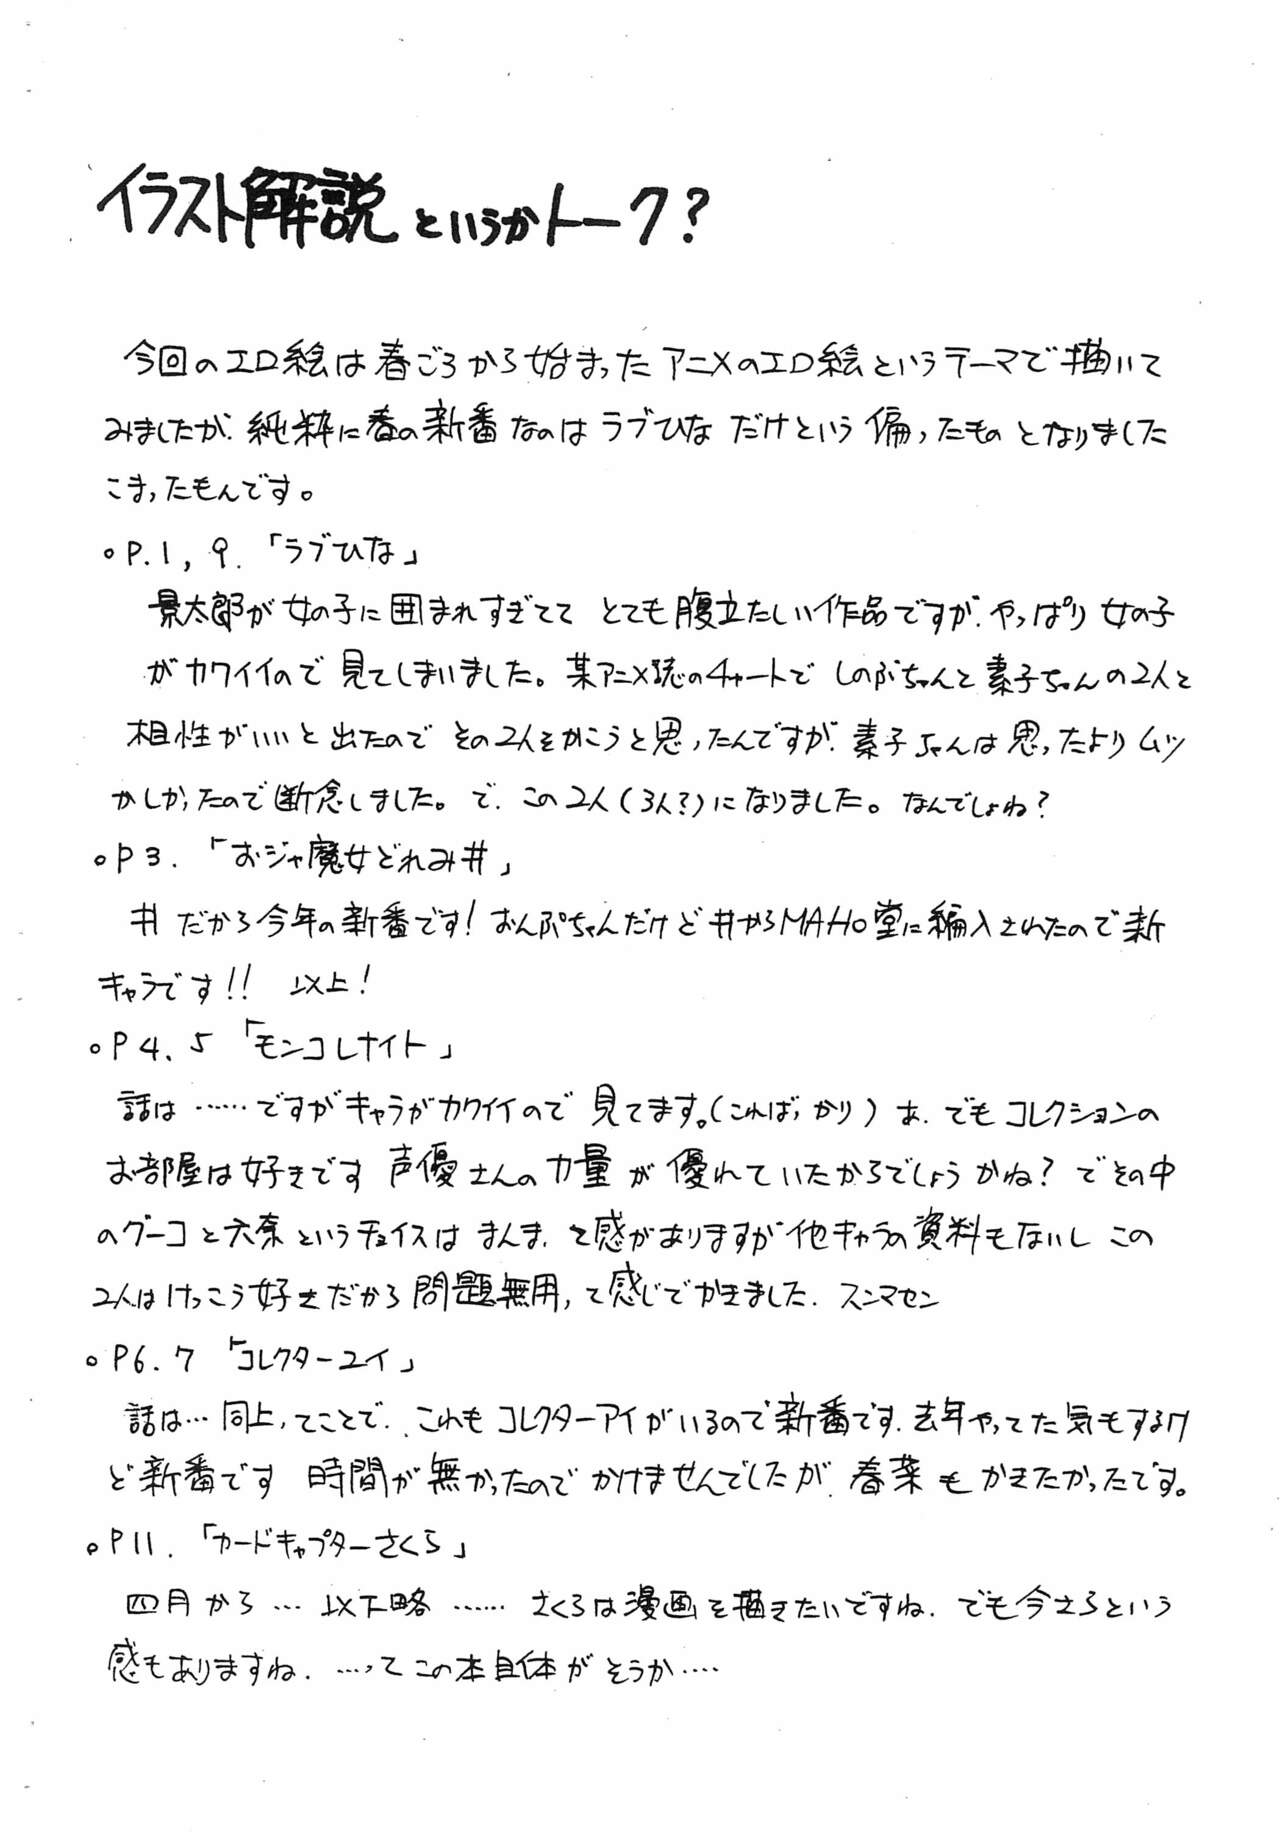 イラスト解説というかトーク?
今回のエロ絵は春ごろから始まったアニメのエロ絵というテーマで描いて
みましたが.純粋に春の新番なのはラブひなだけという偏ったものとなりました
こまったもんです。
○P.1,9.「ラブひな」
景太郎が女の子に囲まれすぎてて とても腹立たしい作品ですが.やっぱり女の子
がカワイイので見てしまいました。某アニメ誌のチャートで しのぶちゃんと素子ちゃんの2人と
相性がいいと出たので その2人をかこうと思ったんですが.素子ちゃんは思ったよりムツ
かしかったので断念しました。で.この2人(3人?)になりました。なんでしょね?
○P3.「おジャ魔女どれみ#」
#だから今年の新番です!おんぷちゃんだけど#からMAHO堂に編入されたので新
キャラです!! 以上!
○P4.5「モンコレナイト」
話は……ですがキャラがカワイイので 見てます。(こればっかり) あ.でもコレクションの
お部屋は好きです 声優さんの力量が優れていたからでしょうかね?でその中
のグーコと六奈というチョイスは まんまって感がありますが他キャラの資料もないし この
2人はけっこう好きだから問題無用って感じでかきました.スンマセン
○P6.7「コレクターユイ」
話は…同上ってことで..これもコレクターアイがいるので新番です.去年やってた気もするけ
ど新番です 時間が無かったのでかけませんでしたが.春菜もかきたかったです。
○P11.「カードキャプターさくら」
四月から…以下略……さくらは漫画を描きたいですね.でも今さらという
感もありますね.…ってこの本自体がそうか….